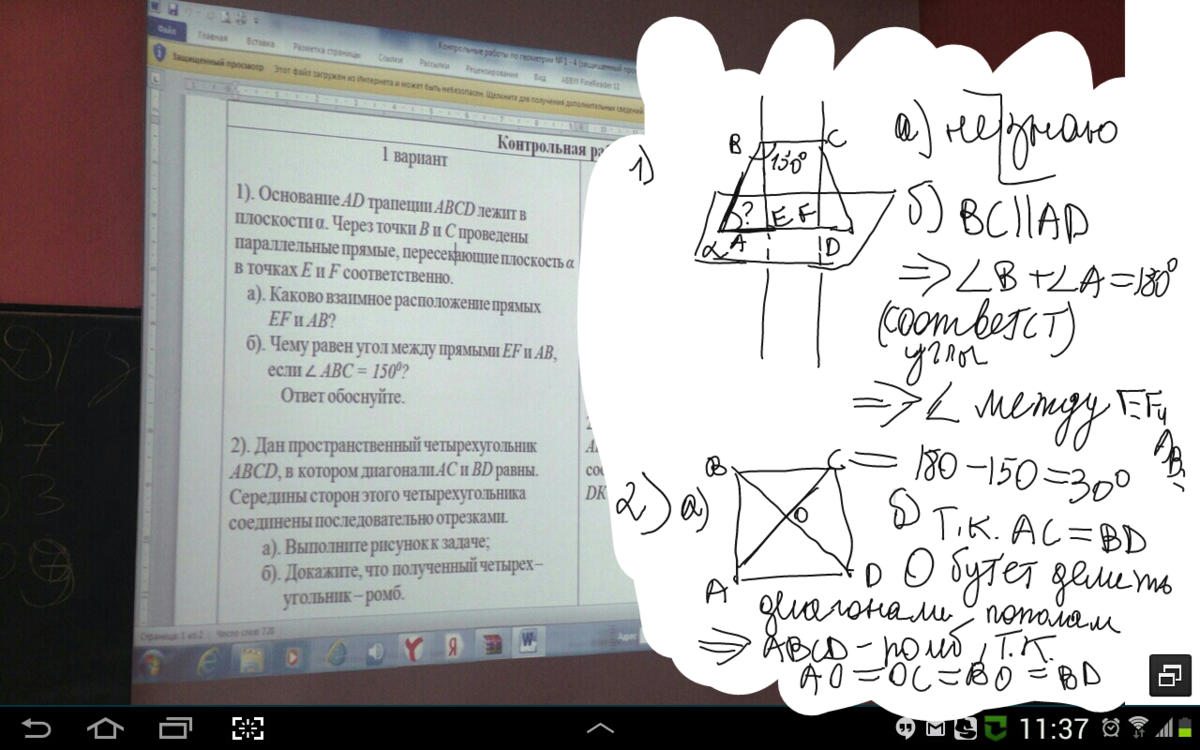 Файл
Главная
Вставка
Разметка страницы
Ссылки
Рассылки
Рецензирование
Вид
ABBYY FineReader 12
Контрольные работы по геометрии № 1 - 4 (защищенный
Защищенный просмотр
Этот файл загружен из Интернета и может быть небезопасен. Щелкните для получения дополнительных сведений.
Контрольная ра
1 вариант
1). Основание AD трапеции ABCD лежит в
плоскости α. Через точки B и C проведены
параллельные прямые, пересекающие плоскость α
в точках E и F соответственно.
а). Каково взаимное расположение прямых
EF и AB?
б). Чему равен угол между прямыми EF и AB,
если ∠ ABC = 150⁰?
Ответ обоснуйте.
2). Дан пространственный четырехугольник
ABCD, в котором диагонали AC и BD равны.
Середины сторон этого четырехугольника
соединены последовательно отрезками.
а). Выполните рисунок к задаче;
б). Докажите, что полученный четырех–
угольник – ромб.
соо
DK
Страница: 1 из 2
Число слов: 728
Адрес
1)
B
C
150⁰
?
E F
α
A
D
а) не знаю
б) BC||AD
=> ∠B + ∠A = 180⁰
(соответст)
углы
=> ∠ между EF и
AB
= 180 – 150 = 30⁰
2) а)
B
C
O
A
D
б) Т.К. AC = BD
O бутет делить
диагонали потолам
=> ABCD – ромб, т.к.
AO = OC = BO = BD
11:37